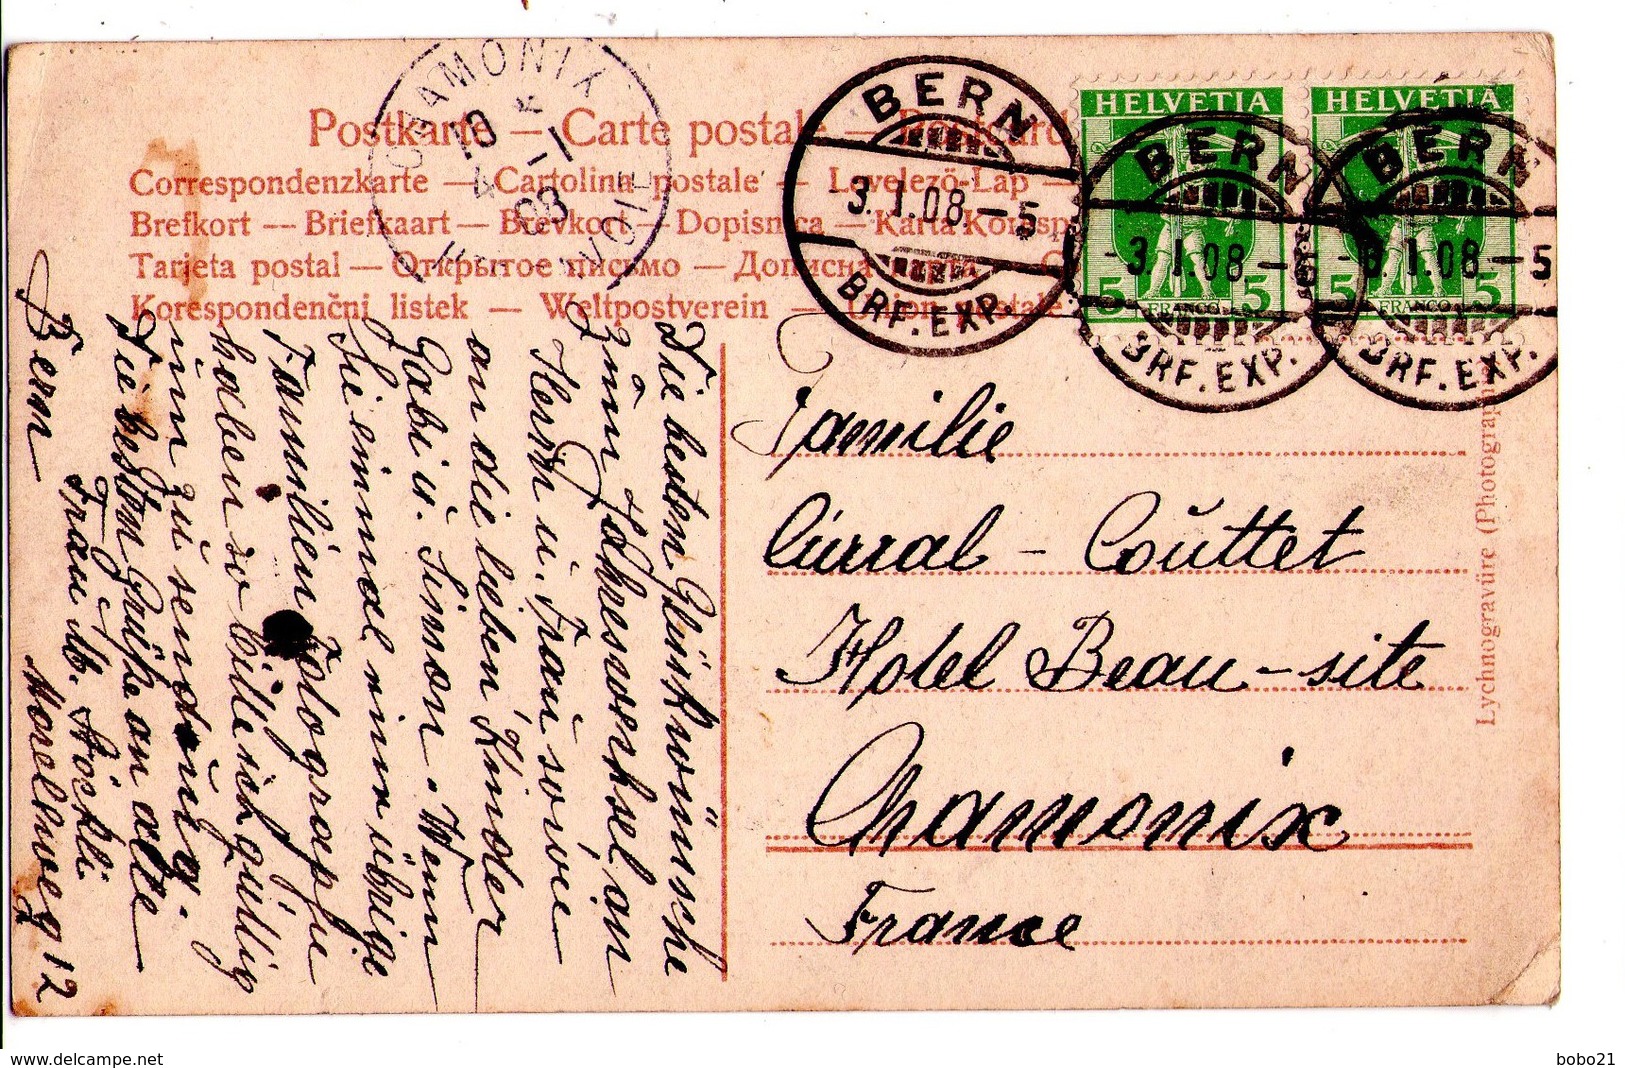 Postkarte — Carte postale —
Correspondenzkarte — Cartolina postale — Levelező-Lap —
Brefkort — Briefkaart — Brevkort — Dopisnica — Karta Koresp
Tarjeta postal — Открытое письмо — Дописна карта —
Korespondenční listek — Weltpostverein — Union postale
CHAMONIX
10
4 - 1
08
SAVOIE
BERN
3.I.08.-5
BRF. EXP.
HELVETIA
5 FRANCO 5
BERN
-3.I.08-
BRF. EXP.
HELVETIA
5 FRANCO 5
BERN
I.08.-5
BRF. EXP.
Familie
Curral - Couttet
Hotel Beau-site
Chamonix
France
Lychnogravüre (Photograph
Die besten Glückwünsche
zum Jahreswechsel an
Herrn u. Frau sowie
an die lieben Kinder
Gabi u. Simon. Wenn
Sie einmal eine übrige
Familien Fotograpfu
haben so bitte ich gütig
um zu sendung.
Die besten Grüße an alle
Frau M. Stöckli
Bern
12
delcampe.net
bobo21